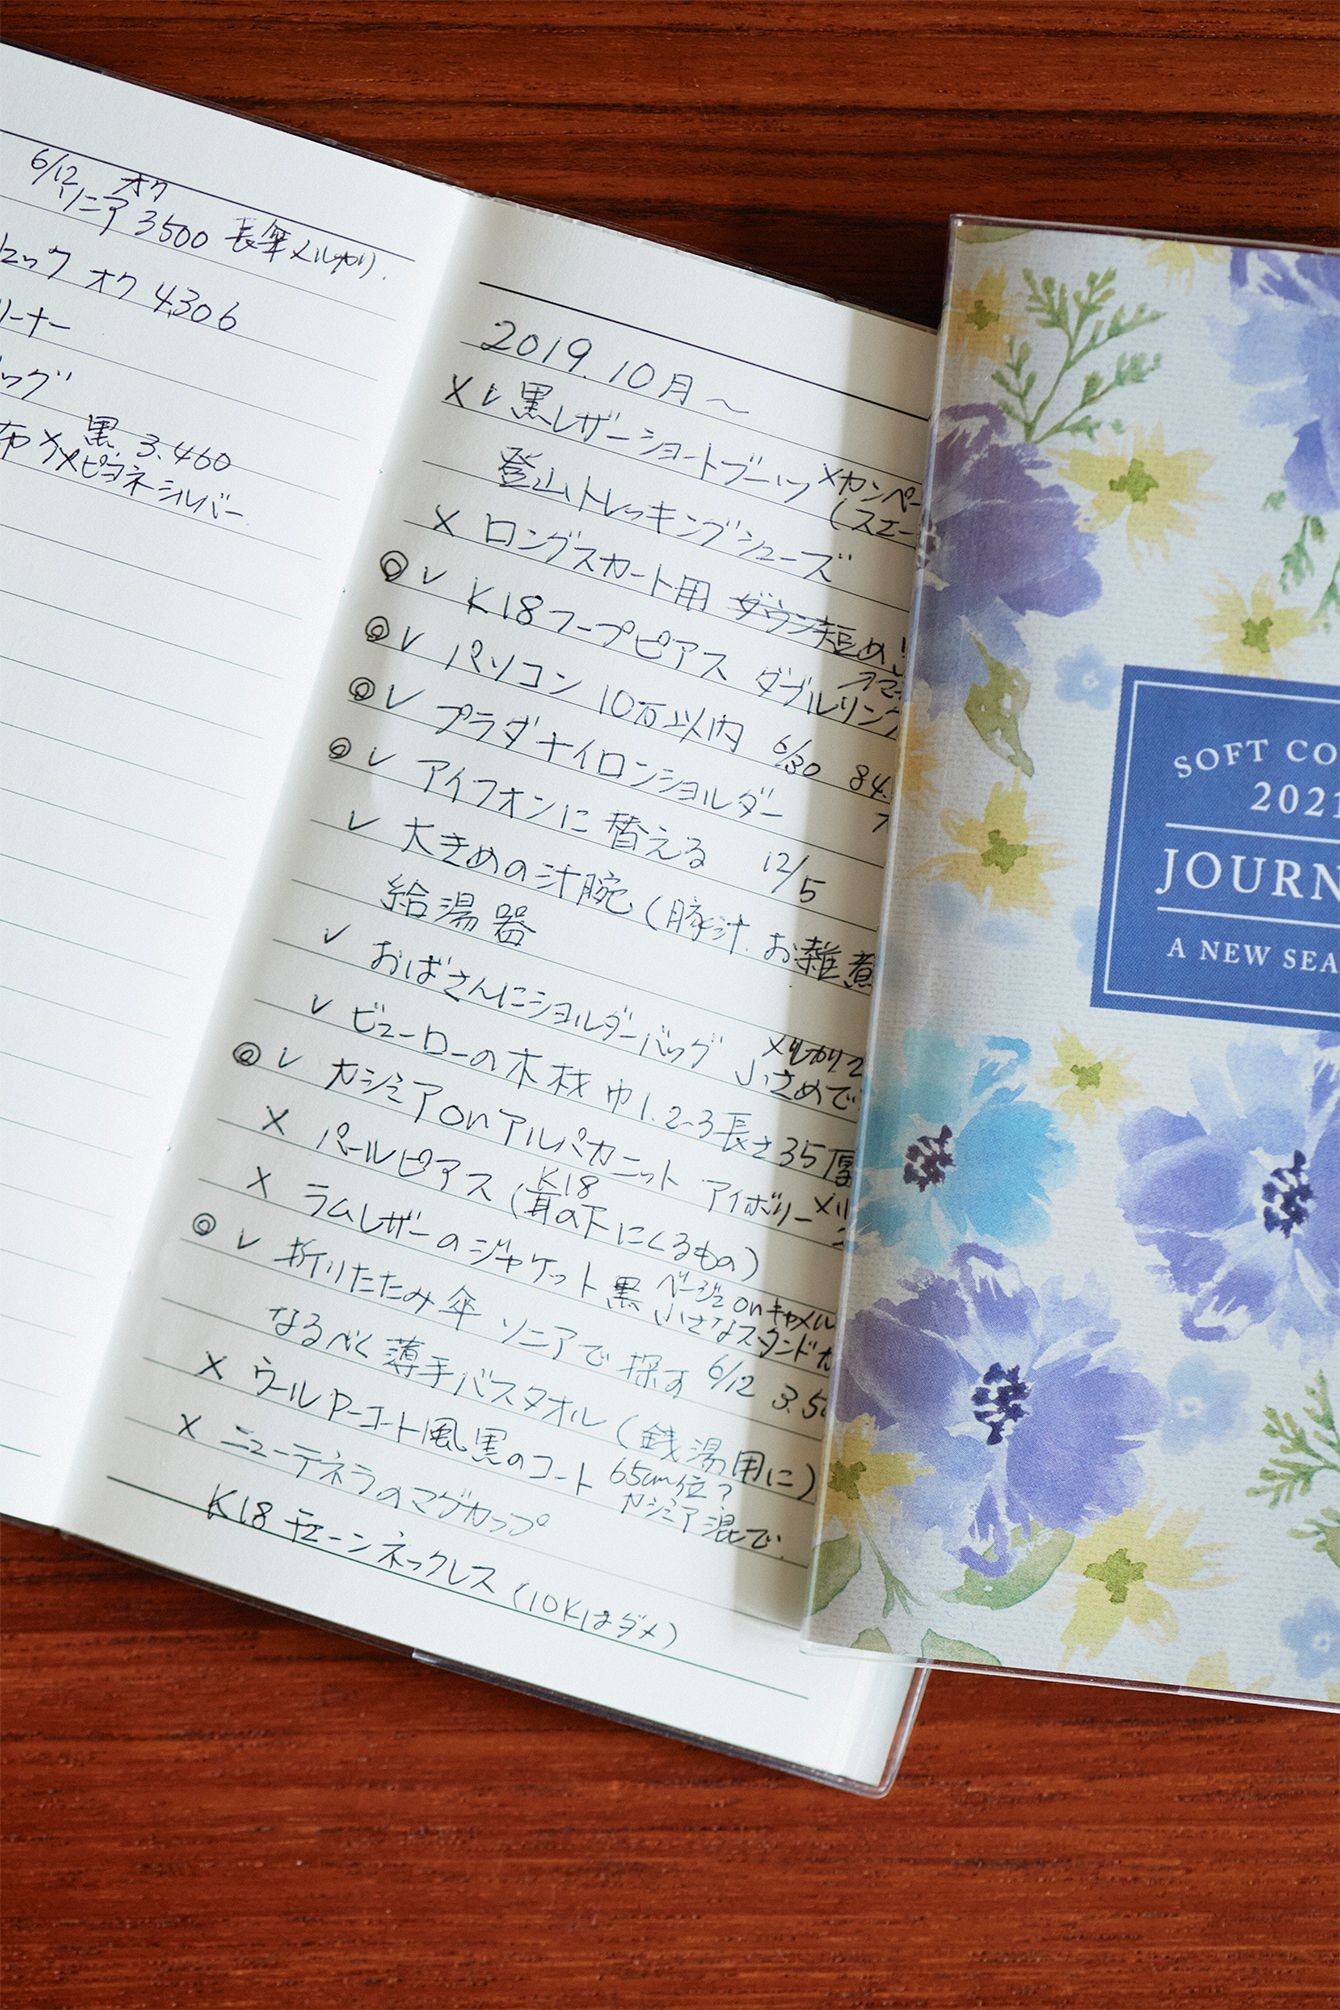 6/12 オク
ソニア 3500 長傘 メルカリ.
ック オク 4,306
リーナー
ッグ
黒 3.460
布 メメピヨネシルバー
2019.10月〜
× ✓ 黒レザーショートブーツ ×カンペ
(スエー
登山トレッキングシューズ
× ロングスカート用 ダウン短め
◎ ✓ K18フープピアス ダブルリング
◎ ✓ パソコン 10万以内 6/30 84.
◎ ✓ プラダナイロンショルダー
◎ ✓ アイフォンに替える 12/5
✓ 大きめの汁腕(豚汁.お雑煮
給湯器
✓ おばさんにショルダーバッグ メルカリで
小さめで
✓ ビューローの木材 巾1.2~3長さ35厚
◎ ✓ カシミアonアルパカニット アイボリー
× パールピアス (K18
耳の下にくるもの)
× ラムレザーのジャケット黒 ベージュonキャメル
小さなスタンドカ
◎ ✓ 折りたたみ傘 ソニアで探す 6/12 3.50
なるべく薄手バスタオル(銭湯用に)
× ウールPコート風黒のコート 65cm位?
カシミア混で.
× ニューテネラのマグカップ
K18チェーンネックレス(10Kはダメ)
SOFT CO
2021
JOURN
A NEW SEA